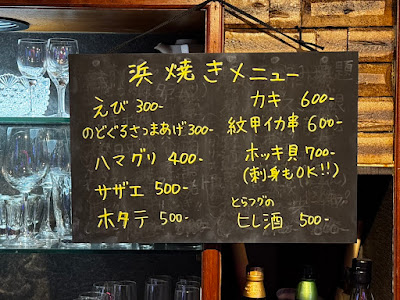 浜焼きメニュー
えび 300-
のどぐろさつまあげ 300-
ハマグリ 400-
サザエ 500-
ホタテ 500-
カキ 600-
紋甲イカ串 600-
ホッキ貝 700-
(刺身もOK!!)
とらフグの
ヒレ酒 500-